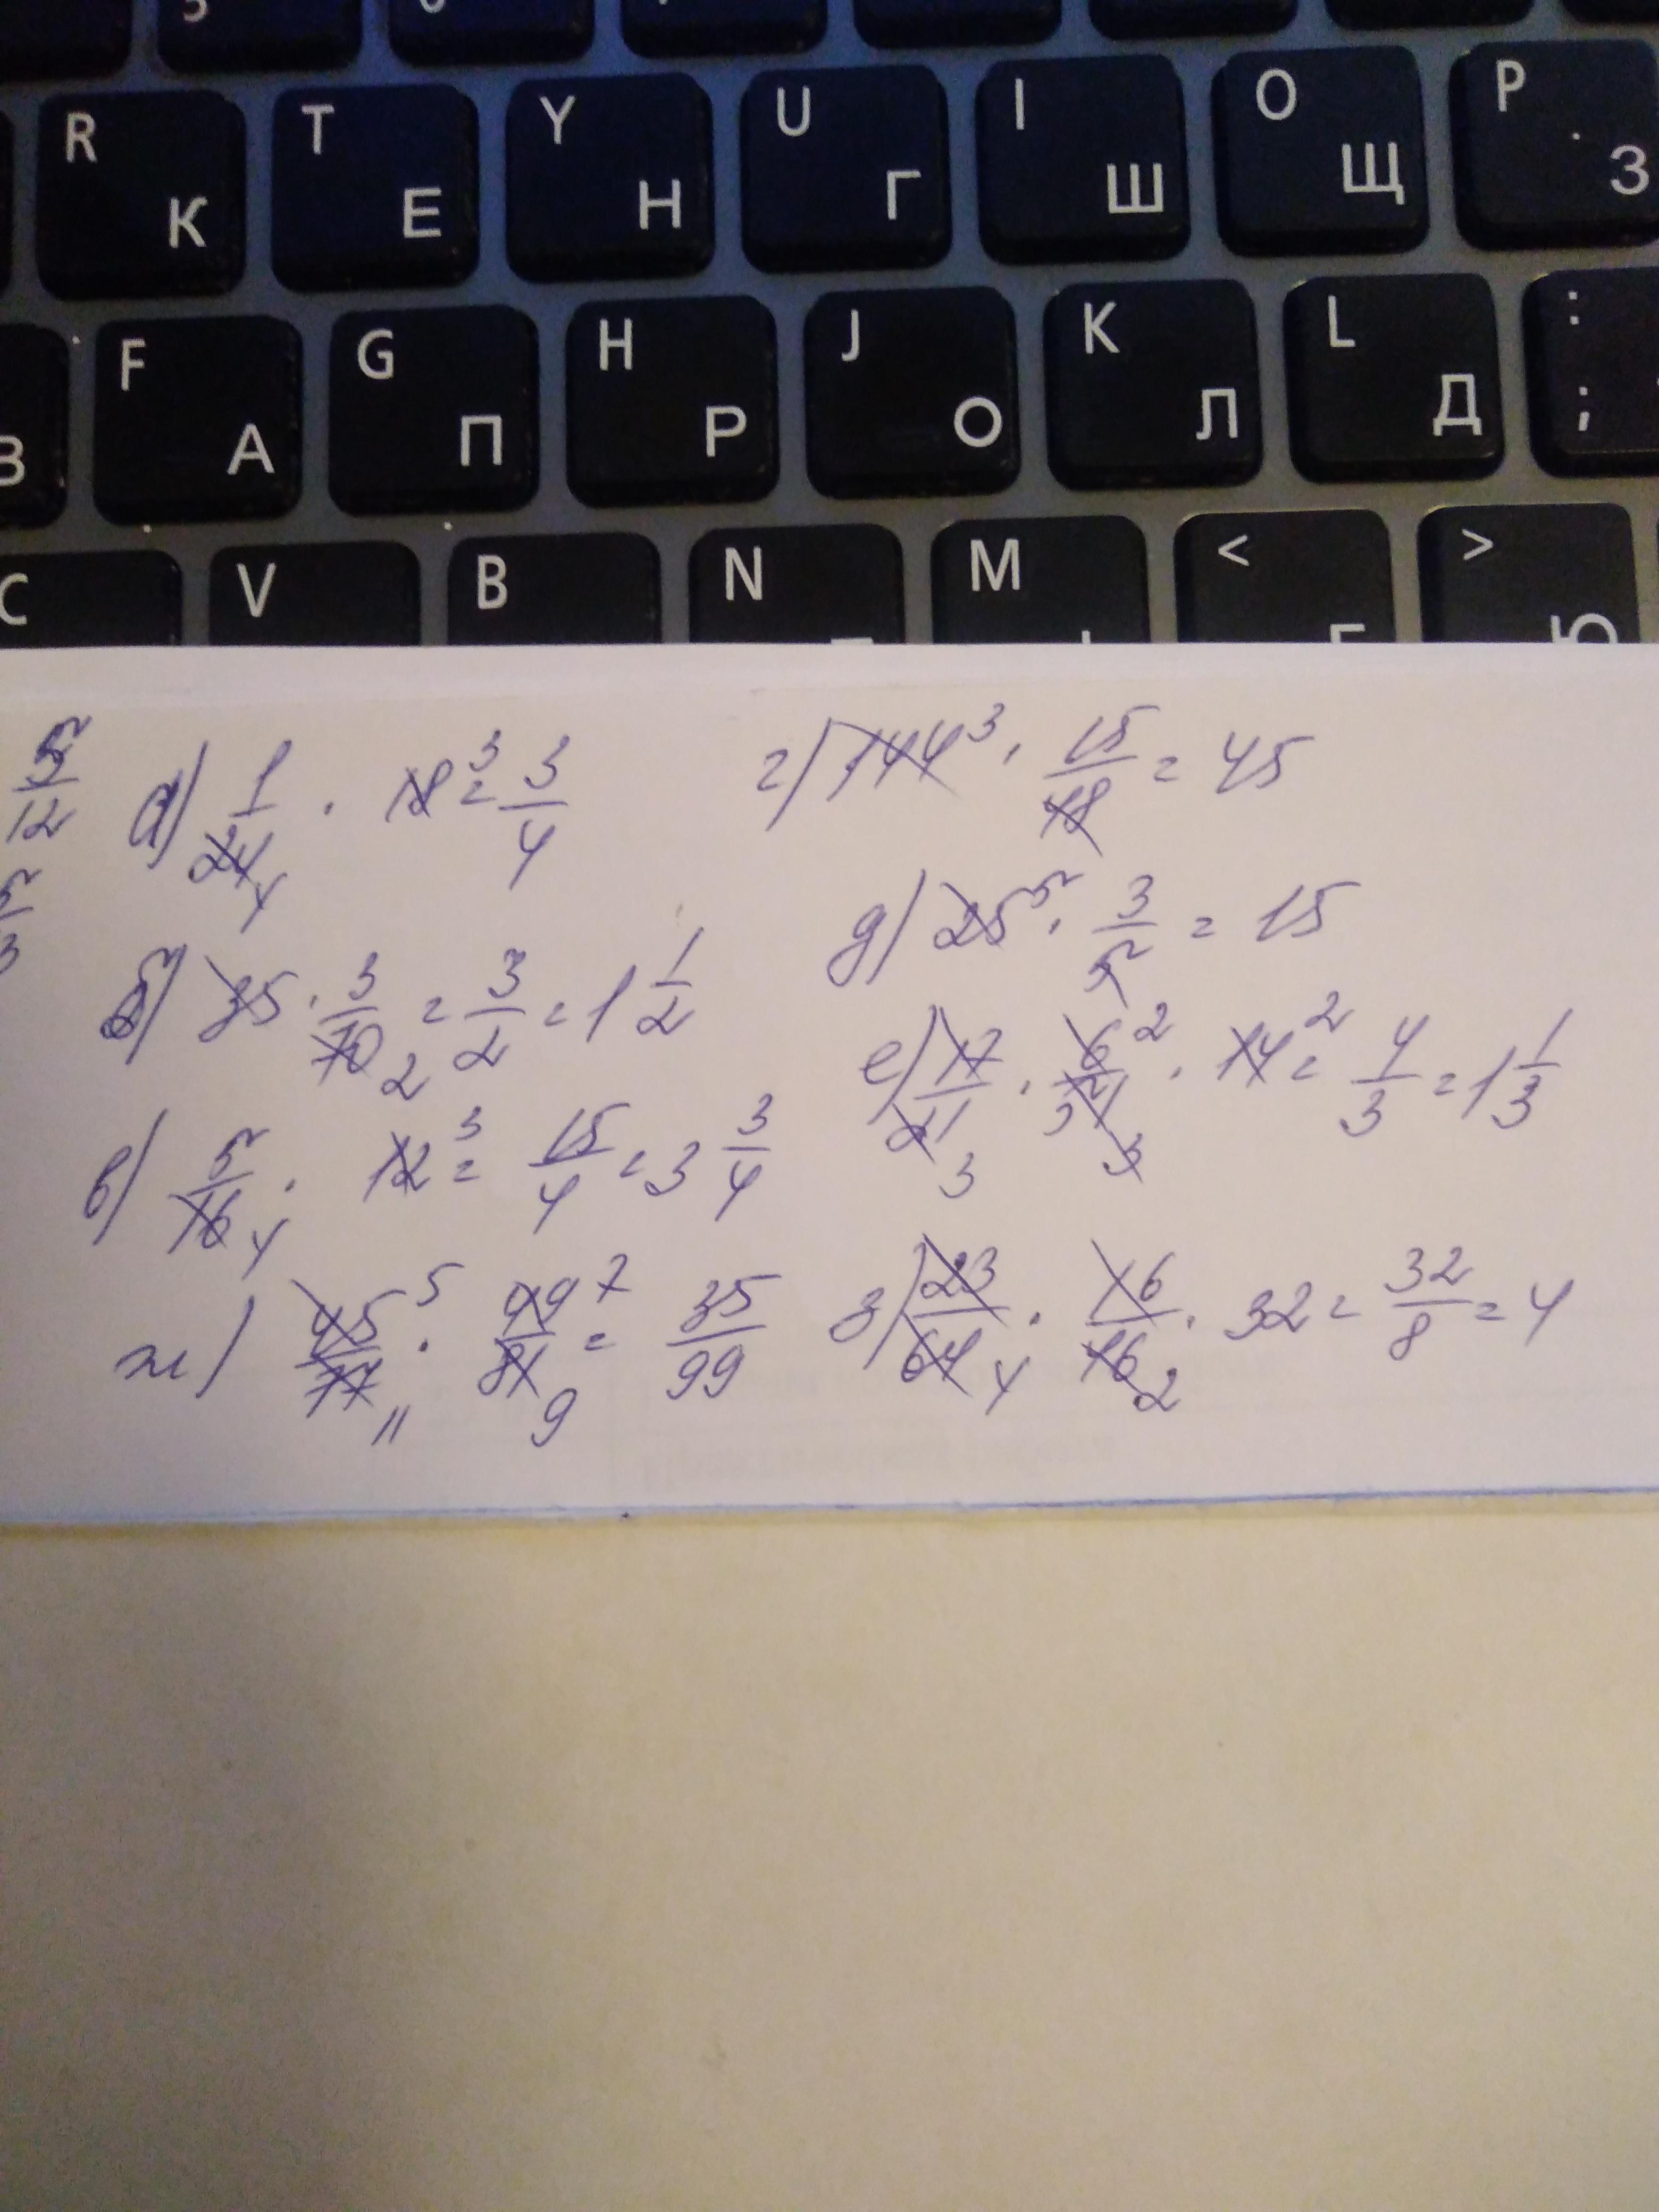 R К T Е Y Н U Г I Ш O Щ P З
В F А G П H Р J О K Л L Д : ;
C V B N M < >  Ю
5/12
а) 1/24 4 · 18 3 = 3/4
г) 144 3 · 15/48 = 45
б) 35 · 3/70 2 = 3/2 = 1 1/2
д) 25 5 · 3/5 = 15
в) 5/16 4 · 12 3 = 15/4 = 3 3/4
е) 17/21 3 · 6 2/51 3 · 14 2 = 4/3 = 1 1/3
ж) 45 5/77 11 · 49 7/81 9 = 35/99
з) 23/64 4 · 16/46 2 · 32 = 32/8 = 4